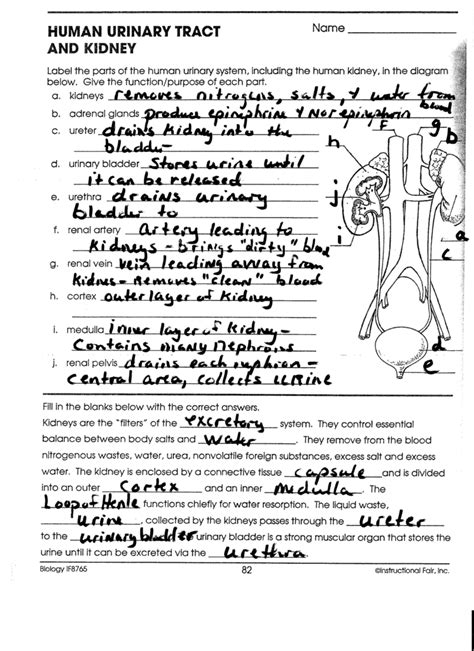 HUMAN URINARY TRACT
AND KIDNEY
Name
Label the parts of the human urinary system, including the human kidney, in the diagram
below. Give the function/purpose of each part.
a. kidneys removes nitrogens, salts, & water from
blood
b. adrenal glands produce epinephrine & Norepinephrin
c. ureter drains kidney into the
bladder
d. urinary bladder Stores urine until
it can be released
e. urethra drains urinary
bladder to
f. renal artery Artery leading to
Kidneys - brings "dirty" blood
g. renal vein vein leading away from
Kidney - Removes "clean" blood
h. cortex outer layer of Kidney
i. medulla inner layer of Kidney -
Contains many Nephrons
j. renal pelvis drains each nephron -
central area, collects urine
F
g
b
h
j
i
a
c
d
e
Fill in the blanks below with the correct answers.
Kidneys are the "filters" of the excretory system. They control essential
balance between body salts and Water. They remove from the blood
nitrogenous wastes, water, urea, nonvolatile foreign substances, excess salt and excess
water. The kidney is enclosed by a connective tissue capsule and is divided
into an outer Cortex and an inner Medulla. The
Loop of Henle functions chiefly for water resorption. The liquid waste,
Urine, collected by the kidneys passes through the ureter
to the urinary bladder urinary bladder is a strong muscular organ that stores the
urine until it can be excreted via the urethra.
Biology IF8765
82
©Instructional Fair, Inc.